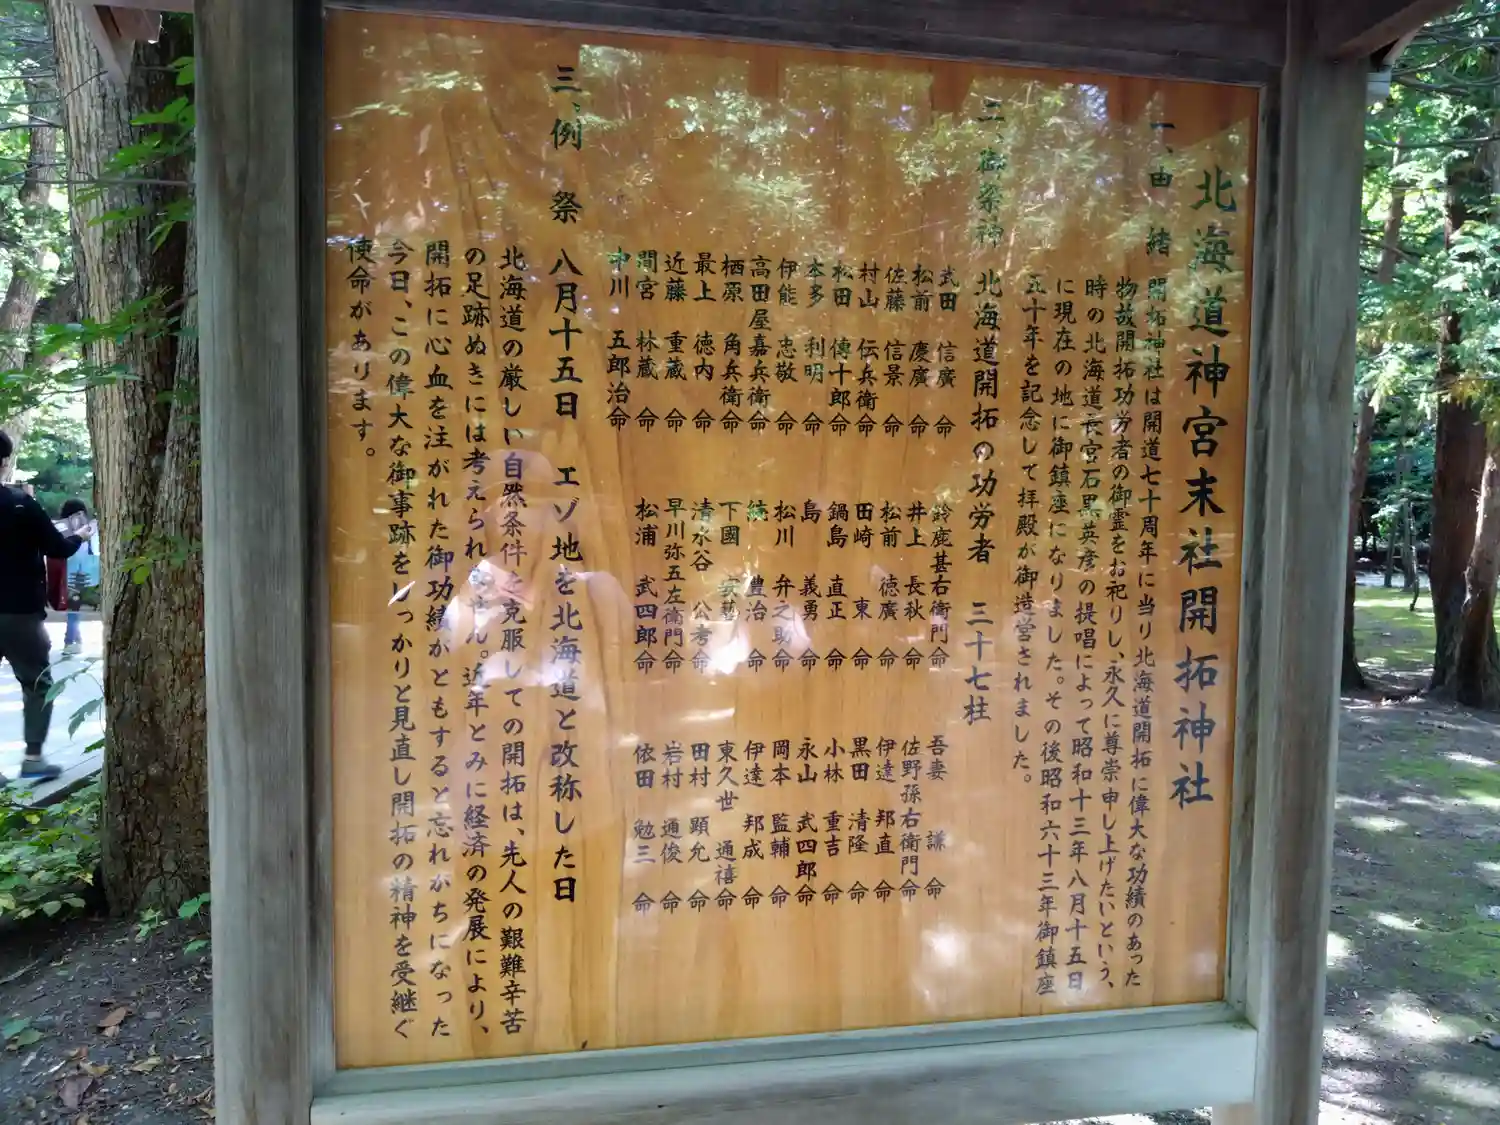 北海道神宮末社開拓神社
一、由緒
開拓神社は開道七十周年に当り北海道開拓に偉大な功績のあった
物故開拓功労者の御霊をお祀りし、永久に尊崇申し上げたいという、
時の北海道長官石黒英彦の提唱によって昭和十三年八月十五日
に現在の地に御鎮座になりました。その後昭和六十三年御鎮座
五十年を記念して拝殿が御造営されました。
二、御祭神 北海道開拓の功労者 三十七柱
武田 信廣 命
松前 慶廣 命
佐藤 信景 命
村山 伝兵衛 命
松田 傳十郎 命
本多 利明 命
伊能 忠敬 命
高田屋嘉兵衛 命
栖原 角兵衛 命
最上 徳内 命
近藤 重蔵 命
間宮 林蔵 命
中川 五郎治 命
鈴鹿甚右衛門 命
井上 長秋 命
松前 徳廣 命
田崎 東 命
鍋島 直正 命
島 義勇 命
松川 弁之助 命
続 豊治 命
下國 安藝 命
清水谷 公考 命
早川弥五左衛門 命
松浦 武四郎 命
吾妻 謙 命
佐野孫右衛門 命
伊達 邦直 命
黒田 清隆 命
小林 重吉 命
永山 武四郎 命
岡本 監輔 命
伊達 邦成 命
東久世 通禧 命
田村 顕允 命
岩村 通俊 命
依田 勉三 命
三、例 祭 八月十五日 エゾ地を北海道と改称した日
北海道の厳しい自然条件を克服しての開拓は、先人の艱難辛苦
の足跡ぬきには考えられません。近年とみに経済の発展により、
開拓に心血を注がれた御功績がともすると忘れがちになった
今日、この偉大な御事跡をしっかりと見直し開拓の精神を受継ぐ
使命があります。